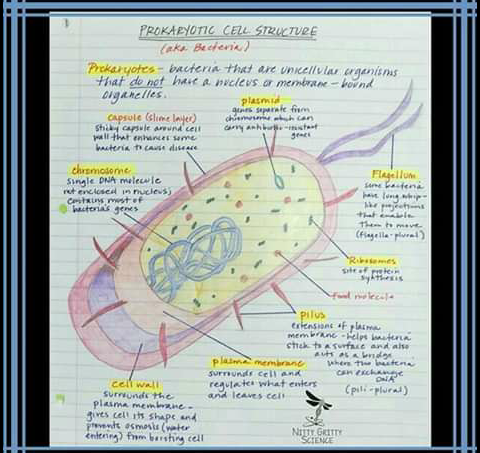 PROKARYOTIC CELL STRUCTURE
(aka Bacteria)
Prokaryotes - bacteria that are unicellular organisms
that do not have a nucleus or membrane-bound
organelles.
capsule (slime layer)
Sticky capsule around cell
wall that enhances some
bacteria to cause disease
plasmid
genes separate from
chromosome which can
carry antibiotic-resistant
genes
chromosome
single DNA molecule
not enclosed in nucleus;
contains most of
bacteria's genes
Flagellum
some bacteria
have long whip-
like projections
that enable
them to move
(flagella-plural)
Ribosomes
site of protein
synthesis
Food molecule
pilus
extensions of plasma
membrane - helps bacteria
stick to a surface and also
acts as a bridge
where two bacteria
can exchange
DNA
(pili-plural)
plasma membrane
surrounds cell and
regulates what enters
and leaves cell
cell wall
surrounds the
plasma membrane -
gives cell its shape and
prevents osmosis (water
entering) from bursting cell
NITTY GRITTY
SCIENCE